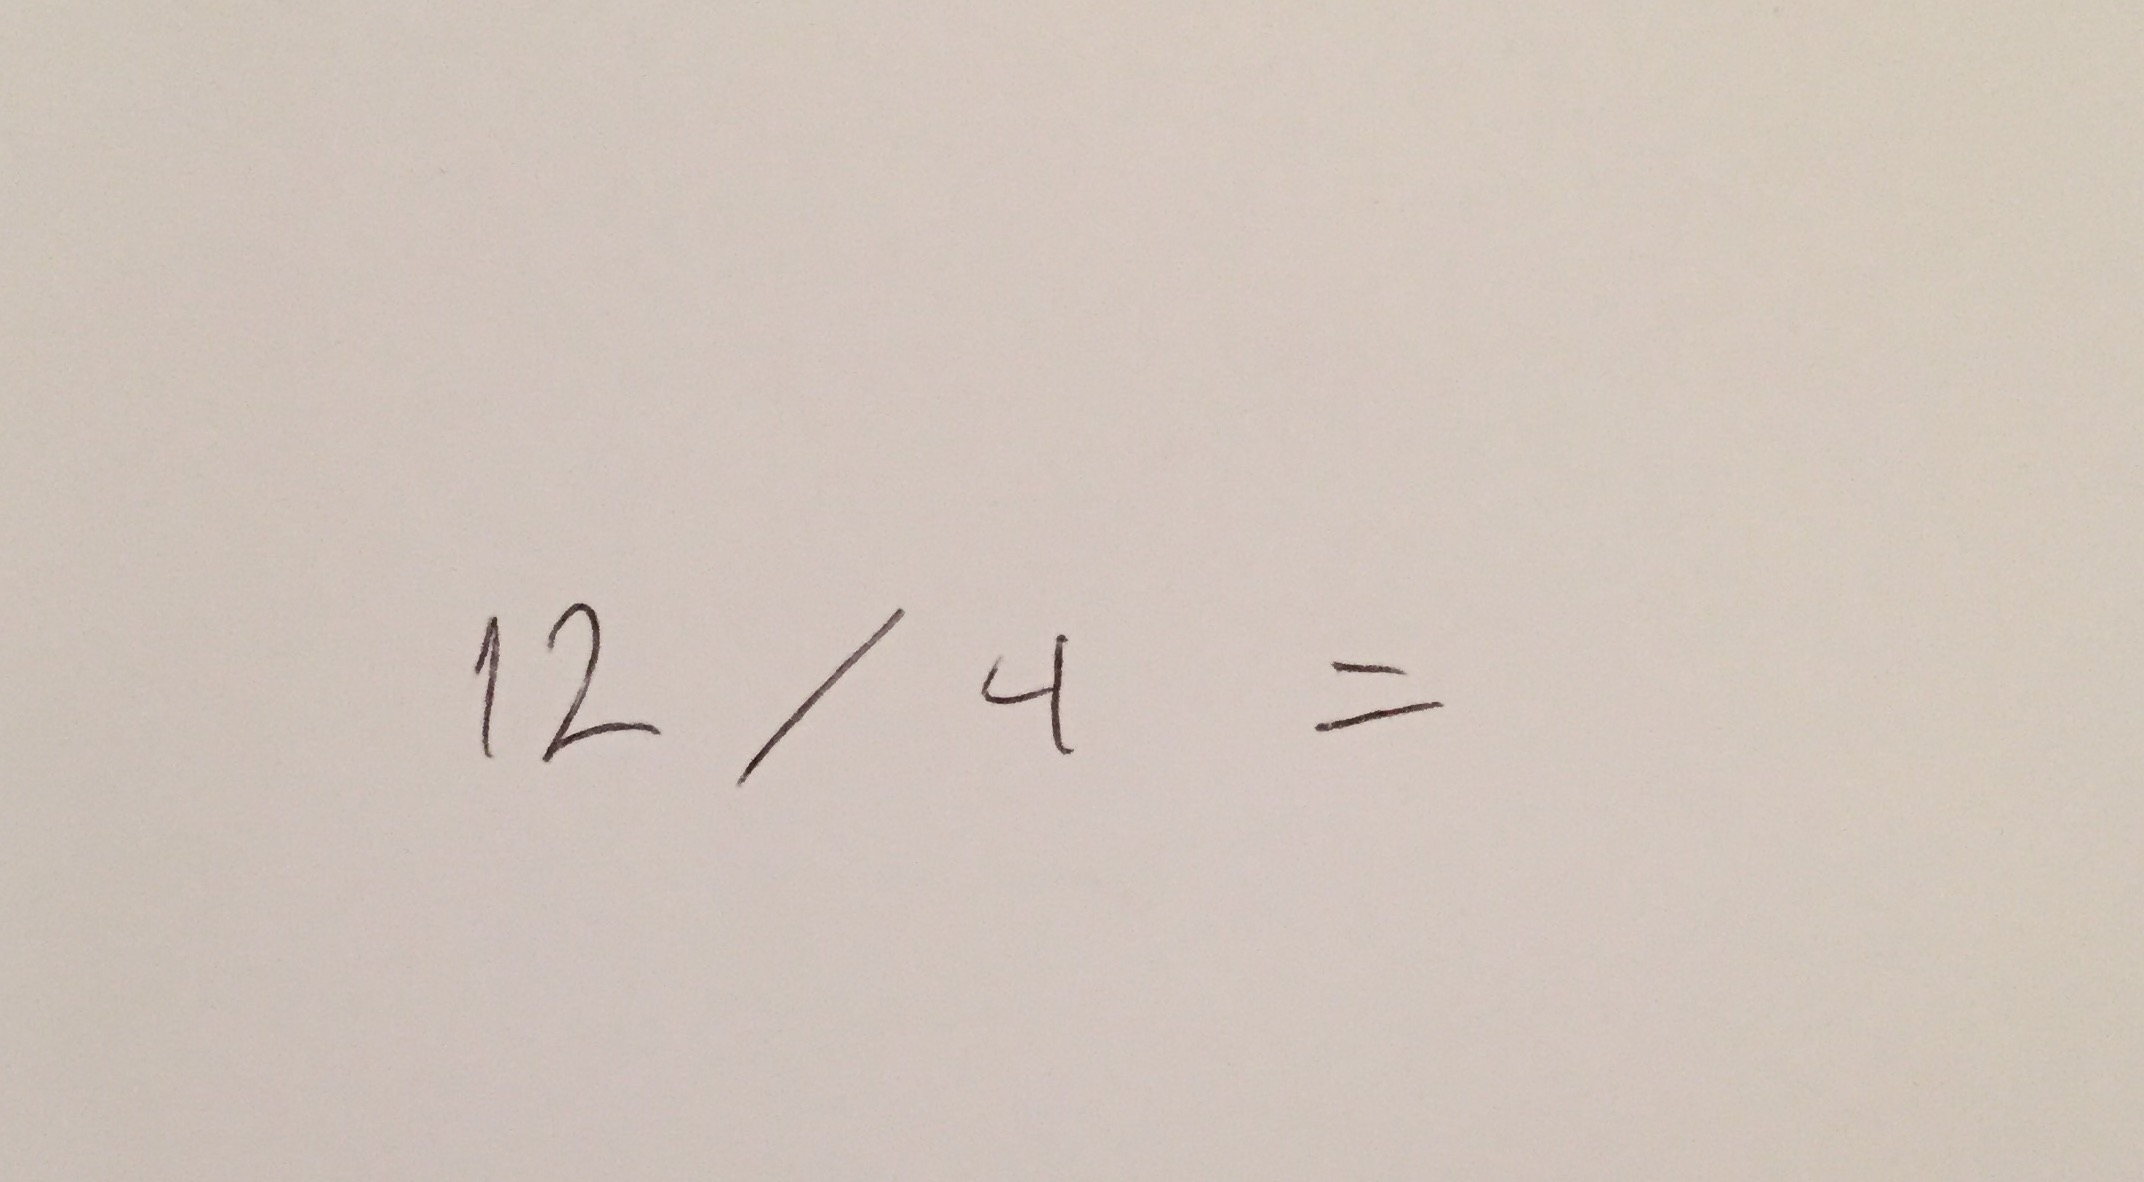 12 / 4 =